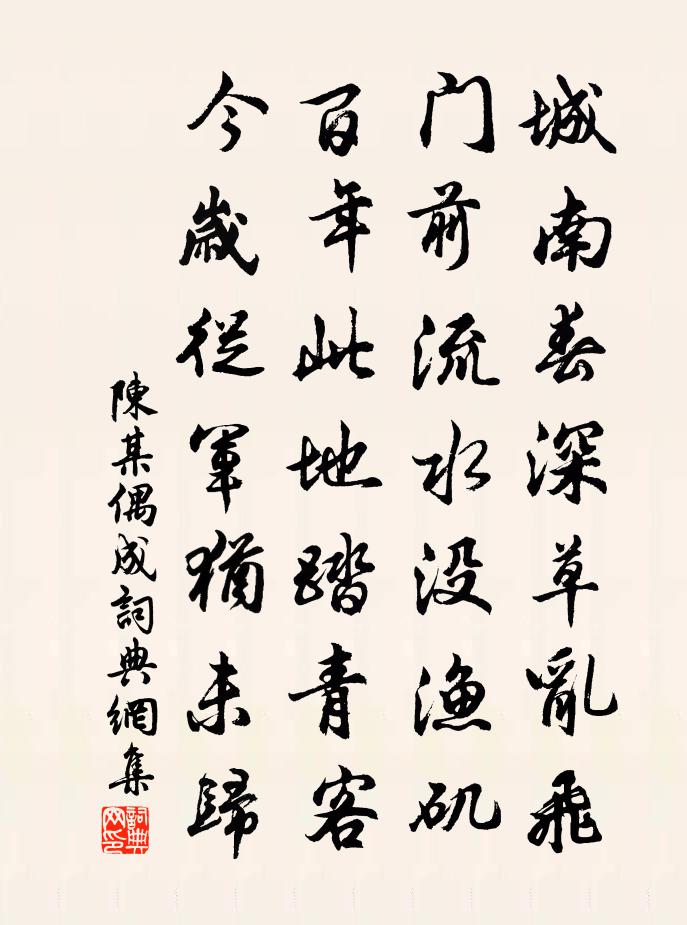 城南春深草亂飛
門前流水没漁矶
百年此地踏青客
今歲從軍猶未歸
陳某偶成詞典網集
詞典网印